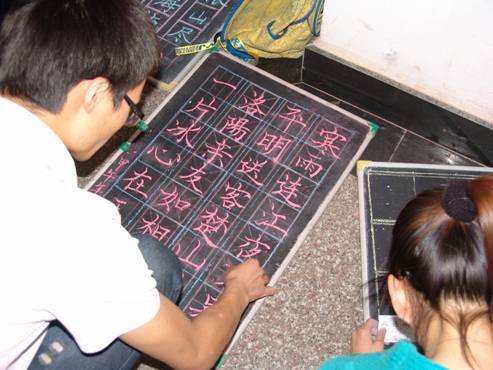 寒雨连江夜
平明送客楚山
洛陽亲友如相
一片冰心在